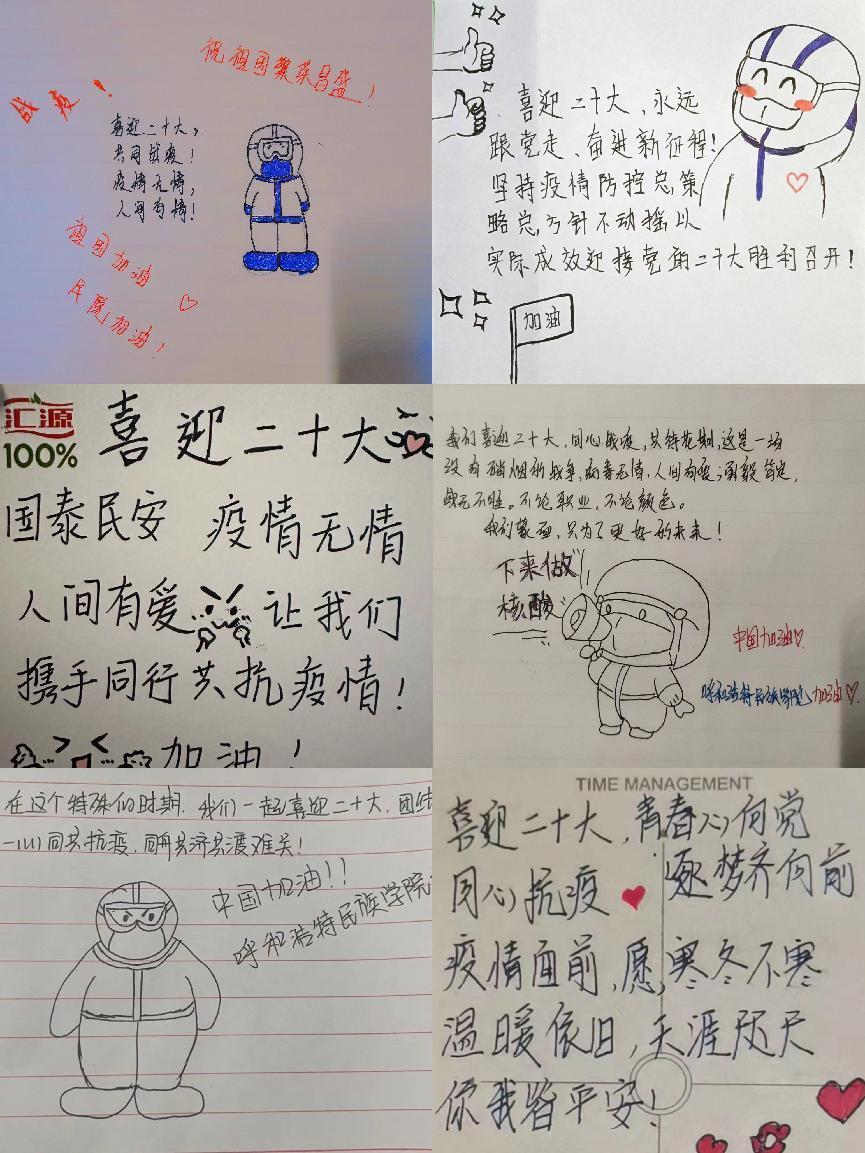 祝祖国繁荣昌盛!
战疫!
喜迎二十大,
共同战疫!
疫情无情,
人间有情!
祖国加油
民院加油!
喜迎二十大、永远
跟党走、奋进新征程!
坚持疫情防控总策
略总方针不动摇以
实际成效迎接党的二十大胜利召开!
加油
汇源
100%
喜迎二十大
国泰民安 疫情无情
人间有爱 让我们
携手同行共抗疫情!
加油!
我们喜迎二十大,同心战疫,共待花期,这是一场
没有硝烟的战争,病毒无情,人间有爱;勇毅笃定,
战无不胜。不论职业,不论颜色。
我们蒙面,只为了更好的未来!
下来做
核酸
中国加油
呼和浩特民族学院加油
在这个特殊的时期,我们一起喜迎二十大,团结
一心同共抗疫,同舟共济共渡难关!
中国加油!!
呼和浩特民族学院
TIME MANAGEMENT
喜迎二十大,青春心向党
同心抗疫 逐梦齐向前
疫情面前,愿,寒冬不寒
温暖依旧,天涯咫尺
你我皆平安!